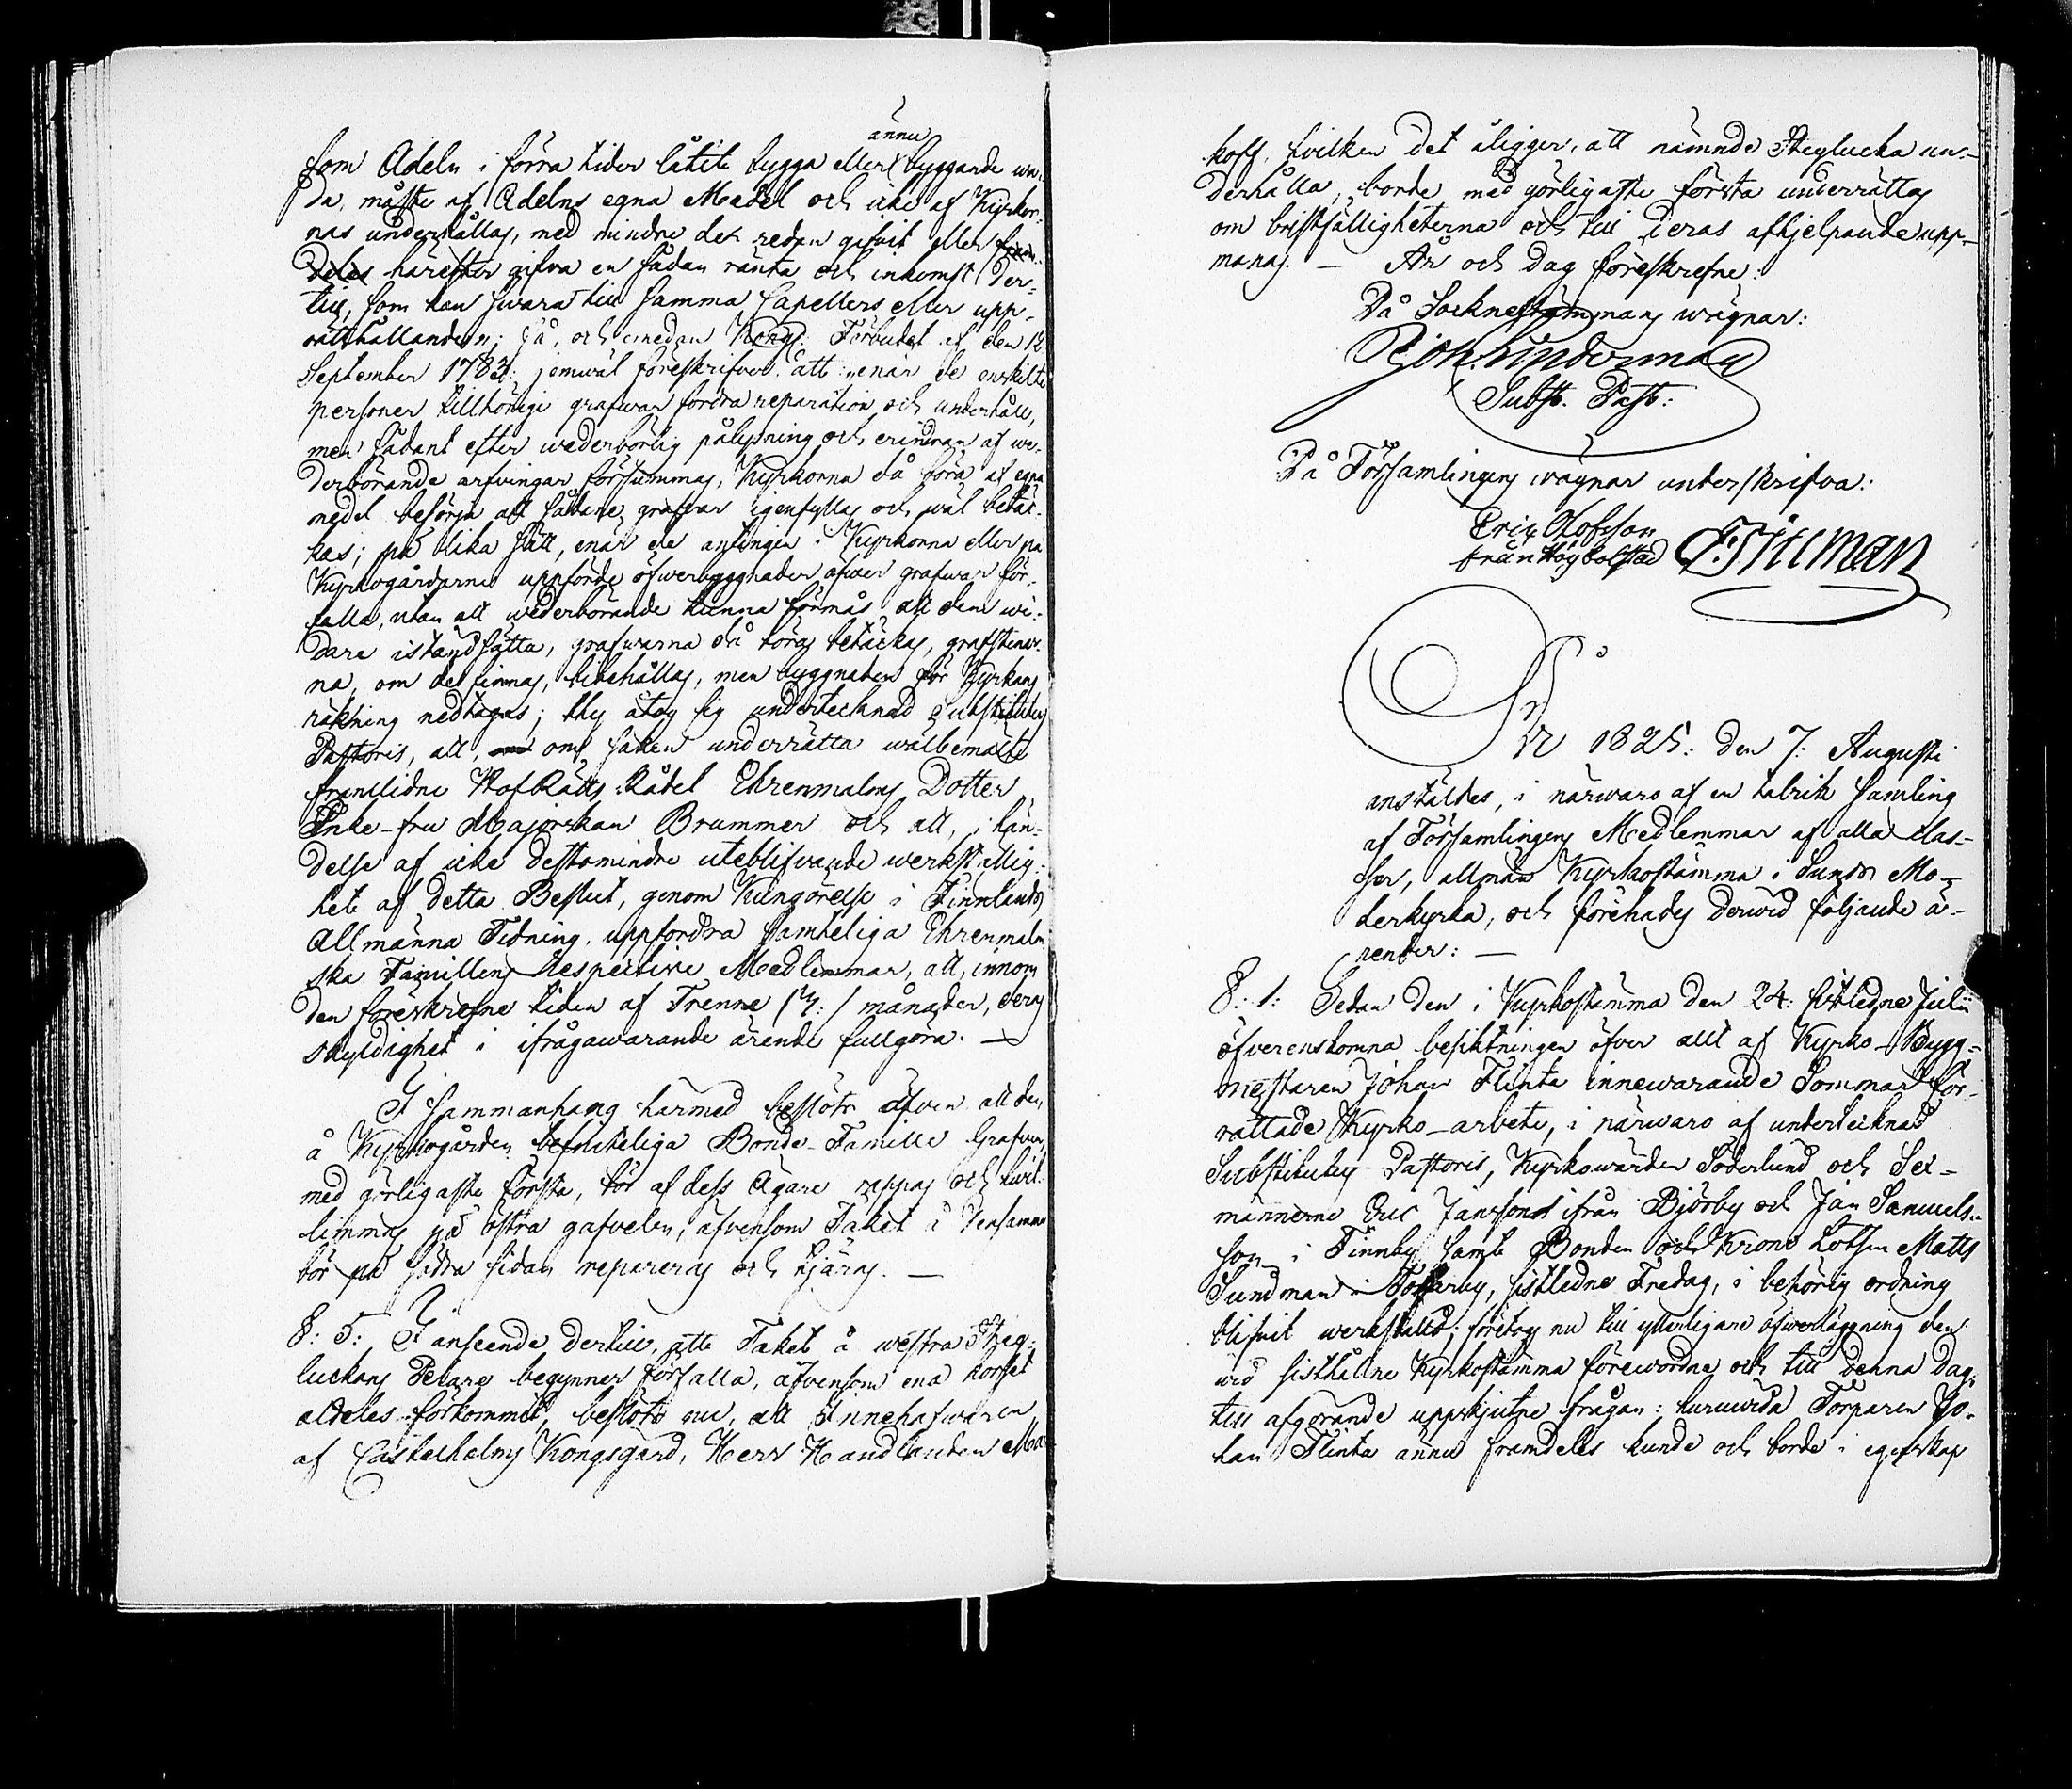 ännu
som Adeln i förra tider låtit bygga eller byggande wa-
da, måste af Adelns egna Medel och icke af Kyrkor-
nas underhållas, med mindre de redan gifvit eller fram-
deles härefter gifva en sådan ränta och inkomst der-
till, som kan swara till samma Capellers eller upp-
rätthållanden; så, och emedan Kongl. Förbudet af den 12
September 1783: jemwäl föreskrifver att "enär de enskilte
personer tillhörige grafwar fordra reparation och underhåll,
men sådant efter wederbörlig pålysning och erindran af we-
derbörande arfvingar försummas, Kyrkorna då böra af egna
medel besörja att sådane grafvar igenfyllas och wäl betäc-
kas; på lika sätt, enär de antingen i Kyrkorna eller på
Kyrkogårdarne uppförde öfwerbyggnader öfwer grafwar för-
falla, utan att wederbörande kunna förmås att dem wi-
dare iståndsätta, grafwarna då böra betäckas, grafstenar-
na, om de finnas, bibehållas, men byggnaden för Kyrkans
räkning nedtagas; thy åtog sig undertecknad Substitutus
Pastoris, att, om saken underrätta wälbemälte
framlidne HofRätts-Rådet Ehrenmalms Dotter
Enke-fru Majorskan Brummer och att, i hän-
delse af icke desstomindre uteblifvande werkställig-
het af detta Beslut, genom Kungörelse i Finnlands
Allmänna Tidning, uppfordra samteliga Ehrenmalm-
ska Familiens Respective Medlemmar, att, innom
den föreskrefne tiden af Trenne /3:/ månader, deras
skyldighet i ifrågawarande ärende fullgöra. —
I sammanhang härmed beslöts äfven att den
å Kyrkogården befinteliga Bonde-Familie Grafven,
med görligaste första, bör af dess Ägare rappas och hvit-
limmas på östra gafvelen, äfvensom Taket å densamma
bör på södra sidan repareras och tjäras. —
§: 5: I anseende dertill, att Taket å westra Stig-
luckans Pelare begynner förfalla, äfvensom ena korset
aldeles förkommit, beslöts nu, att Innehafwaren
af Castelholms Kongsgård, Herr Handlanden Ma-
koff, hvilken det åligger, att nämnde Stiglucka un-
derhålla, borde med görligaste första underrättas
om bristfälligheterna och till deras afhjelpande upp-
manas. — År och dag föreskrefne:
På Socknestämmans wägnar:
Joh. Sundermas
Subst. Past:
På Församlingens wägnar underskrifva:
Eric Olofsson
från Högbolstad
År 1825: den 7: Augusti
anstäldes, i närwaro af en talrik samling
af Församlingens Medlemmar af alla clas-
ser, allmän Kyrkostämma i Sunds Mo-
derkyrka, och förehades derwid följande ä-
render: —
§: 1: Sedan den i Kyrkostämma den 24: sistledne Julii
öfverenskomna besiktningen öfver allt af Kyrko-Bygg-
mästaren Johan Flinta innewarande Sommar för-
rättade Kyrko-arbete, i närwaro af undertecknad
Substitutus Pastoris, Kyrkowärden Söderlund och Sex-
männerne Eric Jansson ifrån Björby och Jan Samuels-
son i Finnby samt Bonden och Krono Lotsen Matts
Sundman i Tosarby, sistledne Fredag, i behörig ordning
blifvit werkställd; företogs nu till ytterligare öfwerläggning den
wid sisthållne Kyrkostämma förewordne och till denna dag,
till afgörande uppskjutne frågan: huruwida Torparen Jo-
han Flinta ännu framdeles kunde och borde i egenskap